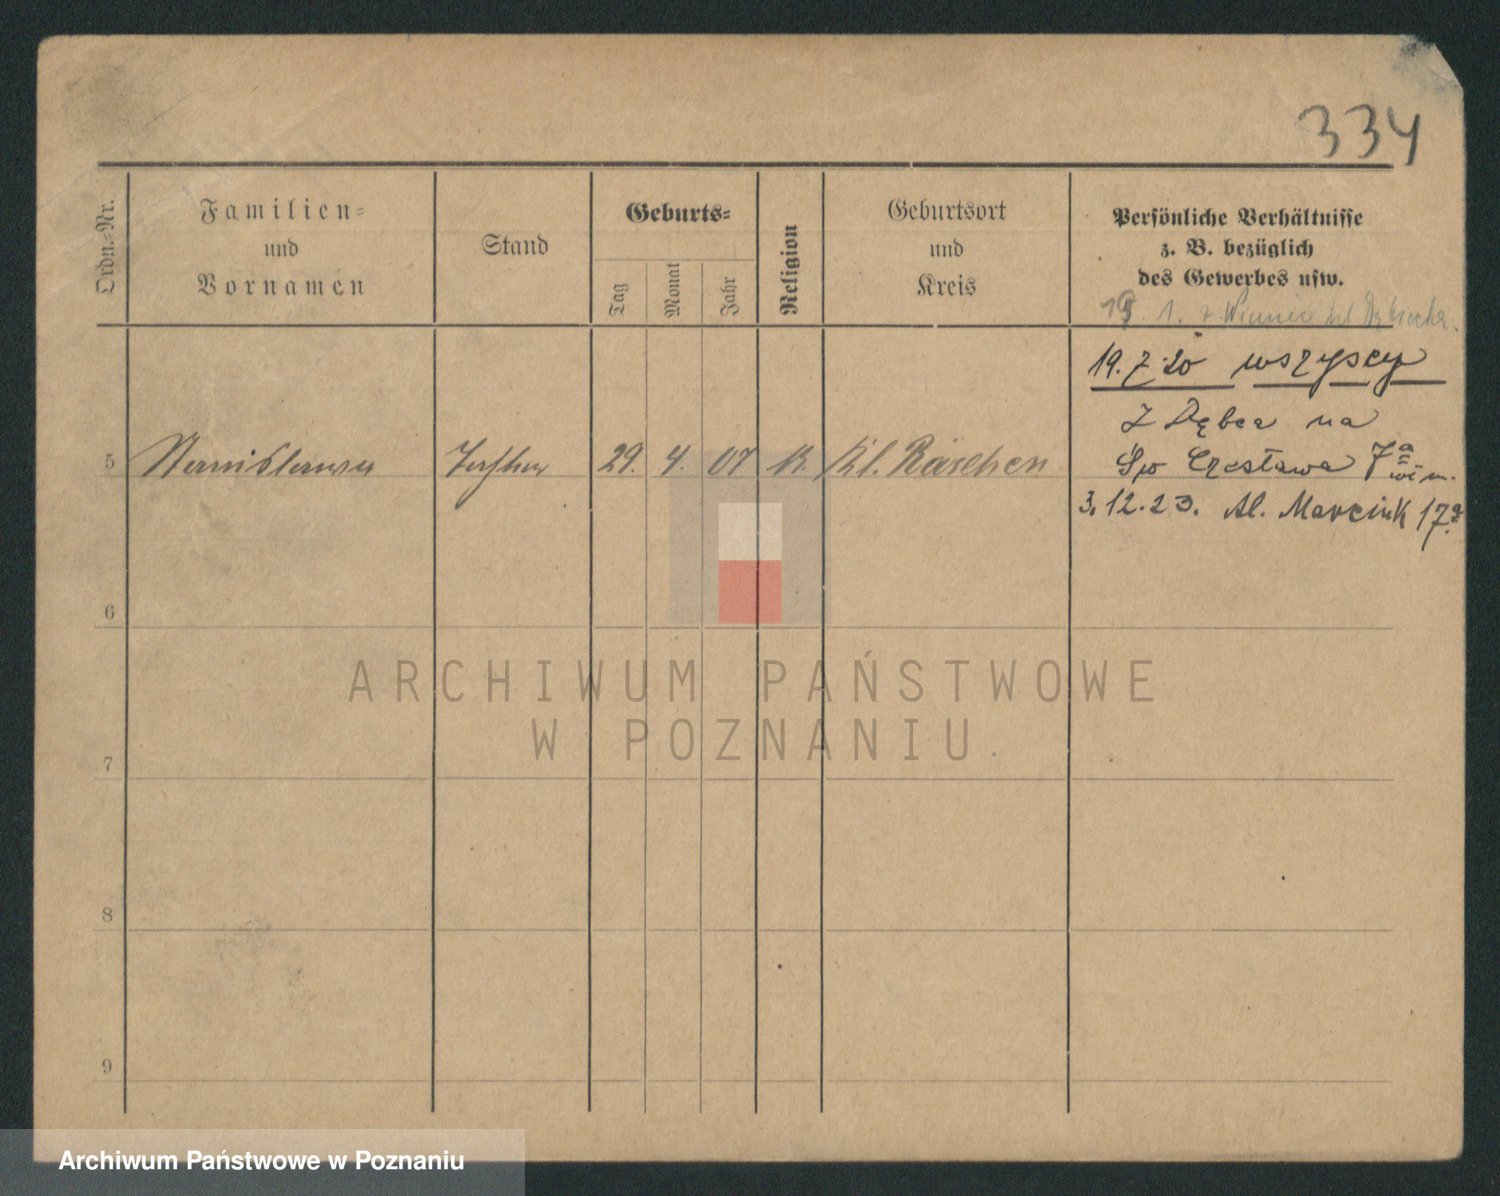 334
Ordn.-Nr.
Familien-
und
Vornamen
Stand
Geburts-
Tag
Monat
Jahr
Religion
Geburtsort
und
Kreis
Persönliche Verhältnisse
z. B. bezüglich
des Gewerbes usw.
1.
19.7.20 wszyscy
Z Dębca na
Czesława 7a
5 Stanislawa Tochter 29. 4. 07 K. Kl. Räschen
3.12.23. Al. Marcink 17a
6
7
8
9
ARCHIWUM PAŃSTWOWE
W POZNANIU
Archiwum Państwowe w Poznaniu